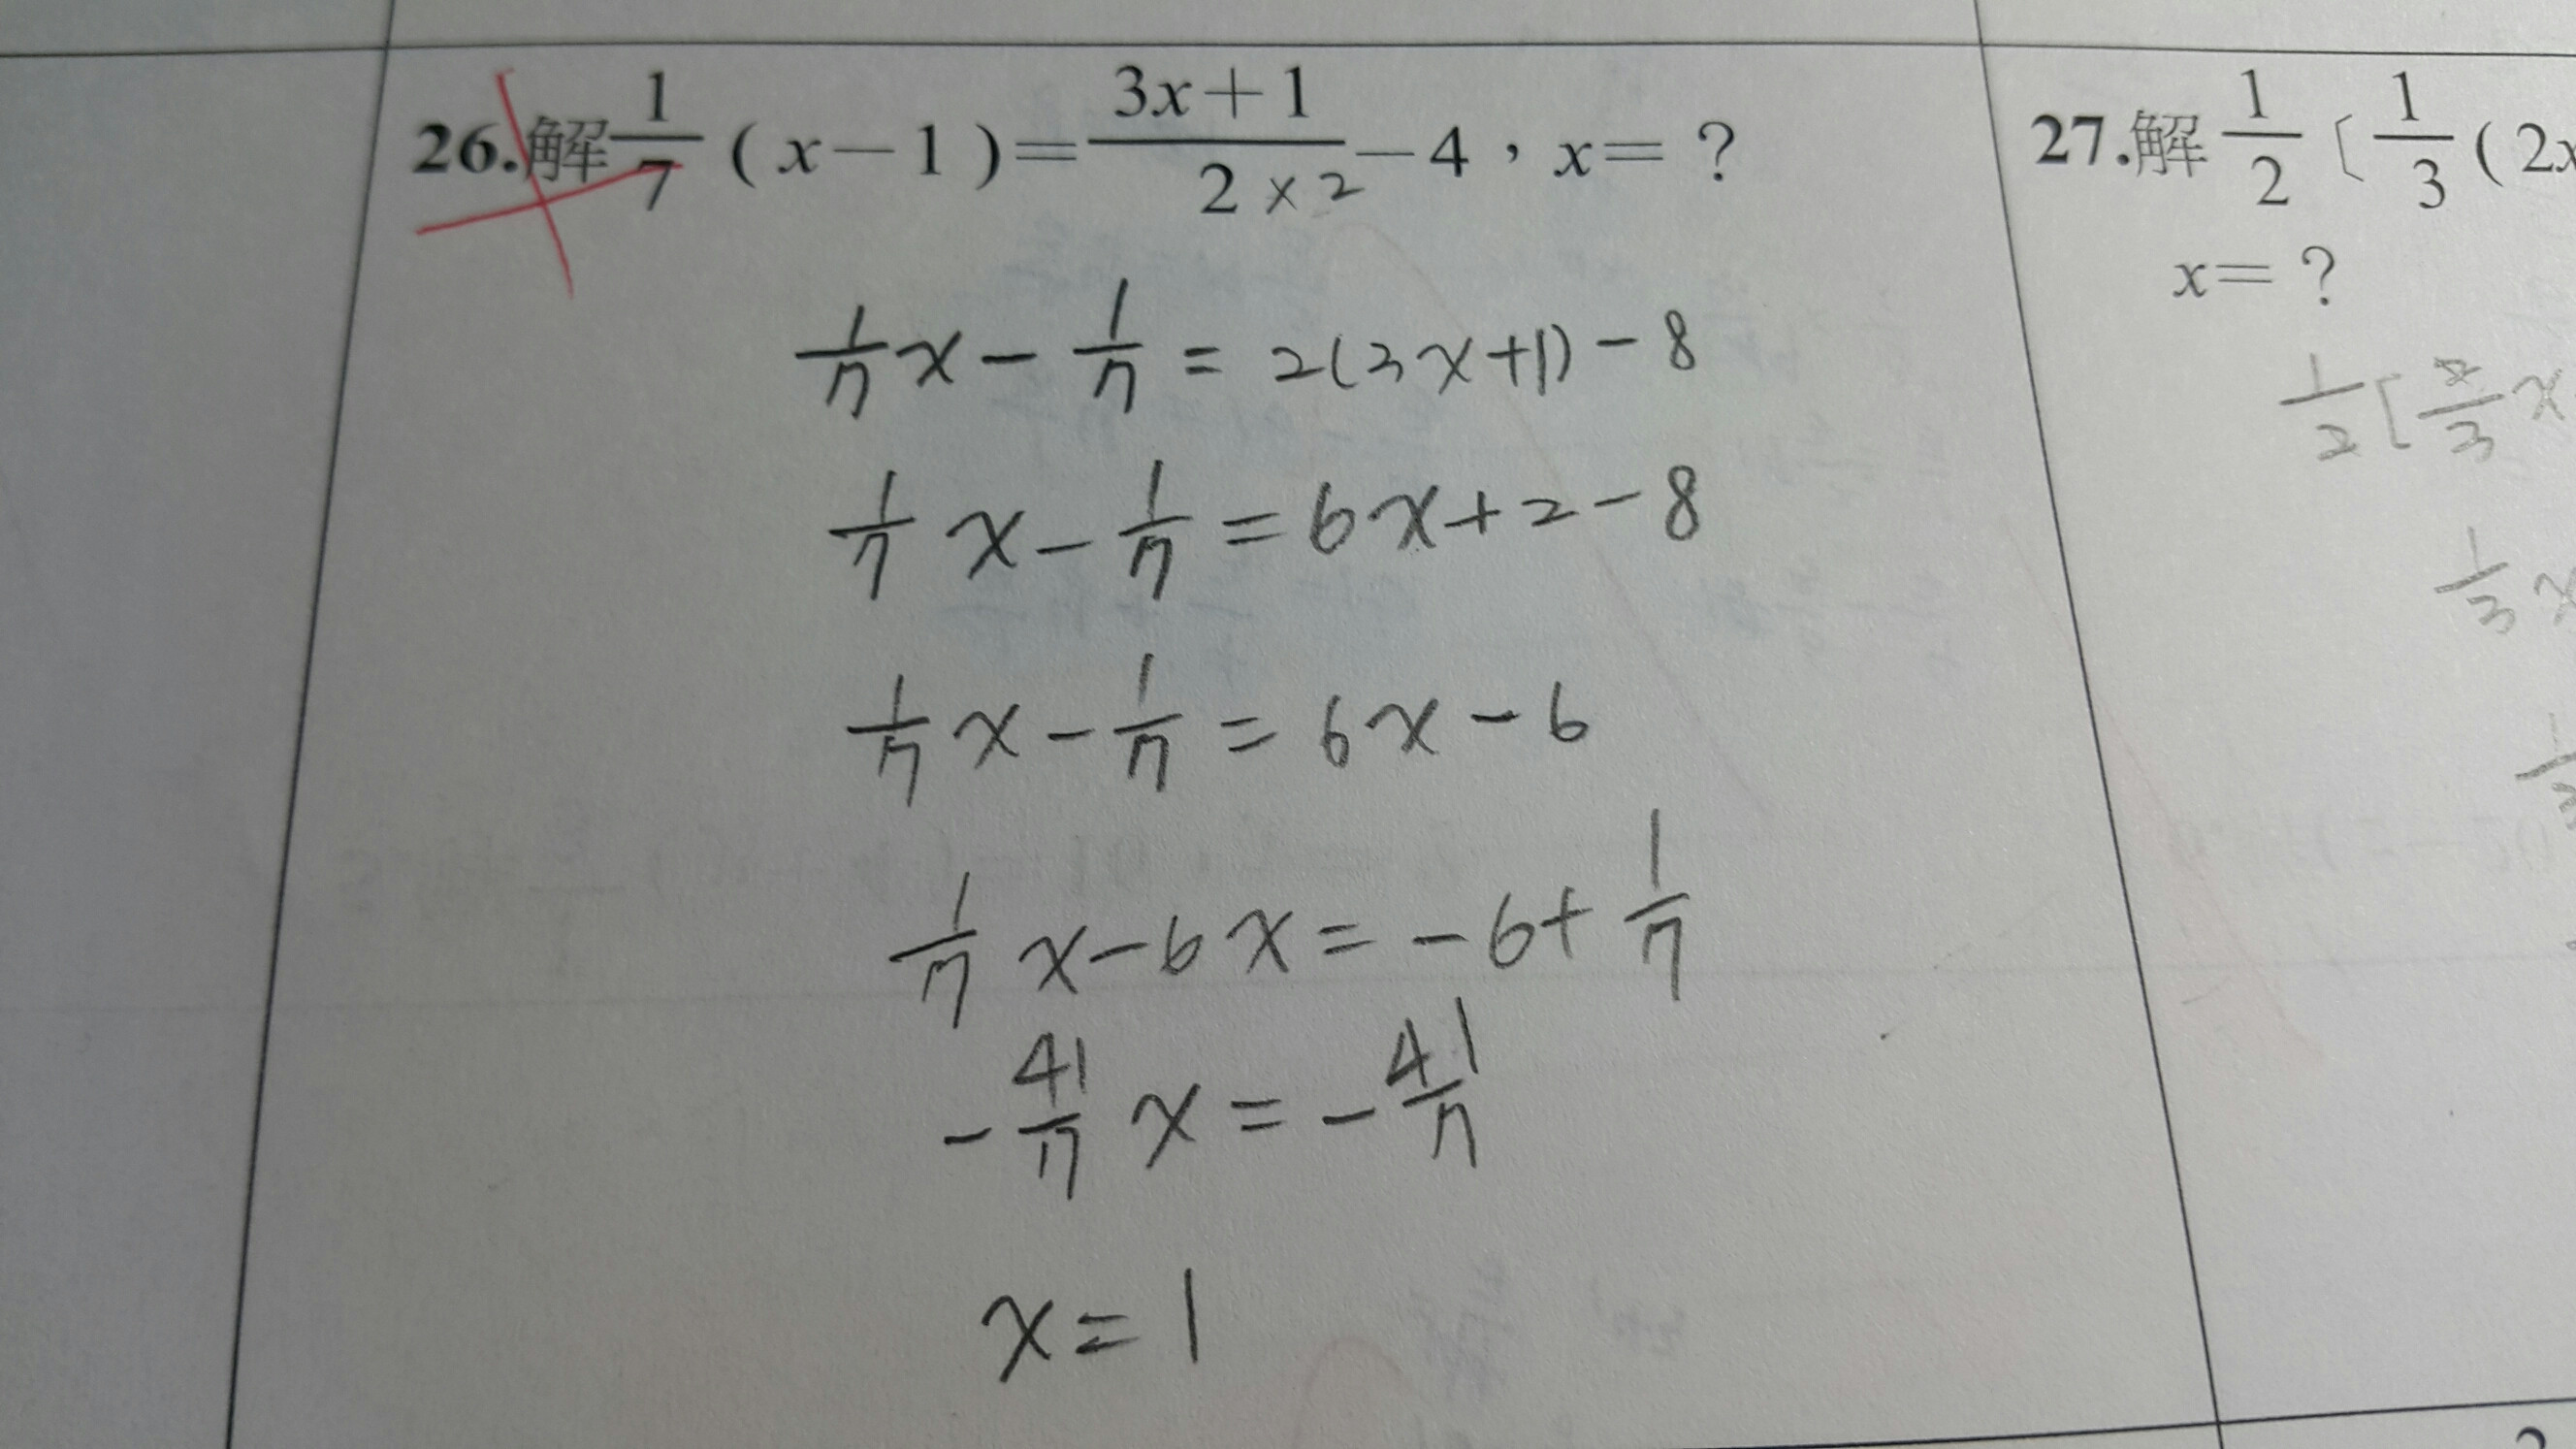 26.解 1/7 ( x－1 )＝ (3x＋1)/2 －4，x＝？
× 2
1/7 x - 1/7 = 2(3x+1) - 8
1/7 x - 1/7 = 6x+2-8
1/7 x - 1/7 = 6x - 6
1/7 x - 6x = -6 + 1/7
- 41/7 x = - 41/7
x = 1
27.解 1/2〔 1/3 ( 2x
x＝？
1/2 [ 2/3 x
1/3 x